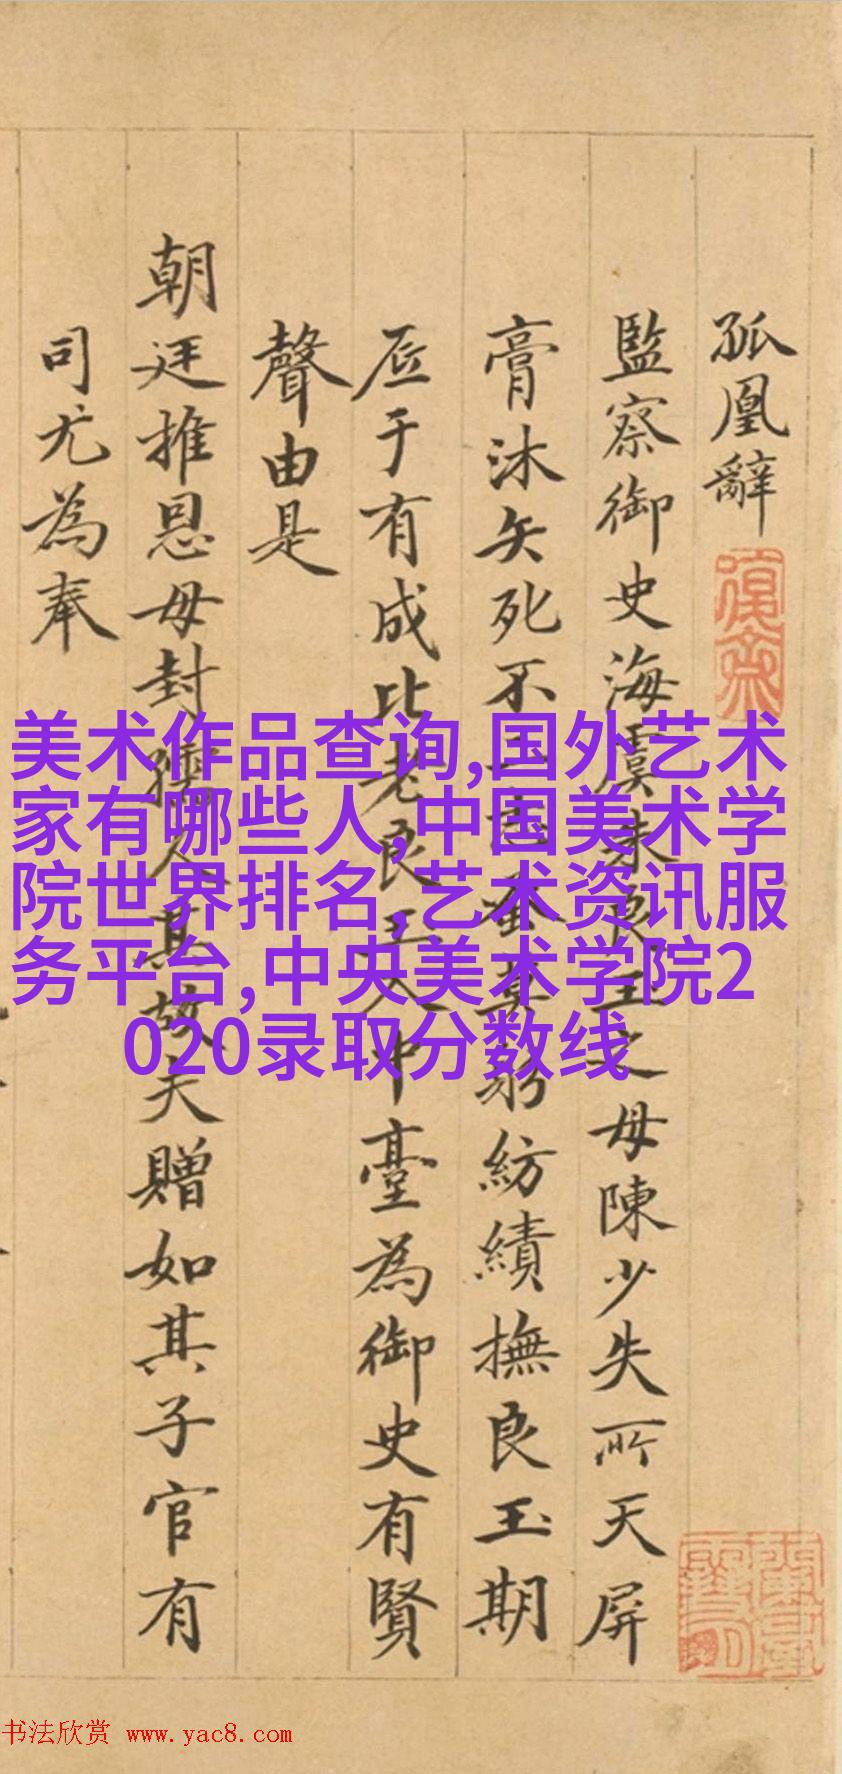 孤凰辭
監察御史海虞朱良玉之母陳少失所天屏
膏沐矢死不躬紡績撫良玉期
底于有成比老良玉入中臺為御史有賢
聲由是
朝廷推恩母封孺人其故夫贈如其子官有
司尤為奉
美术作品查询,国外艺术
家有哪些人,中国美术学
院世界排名,艺术资讯服
务平台,中央美术学院2
020录取分数线
书法欣赏 www.yac8.com